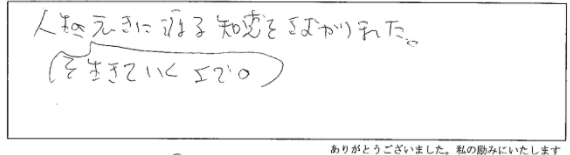 人生 に渡る知恵をさずかりました。
(を生きていく上での)
ありがとうございました。私の励みにいたします